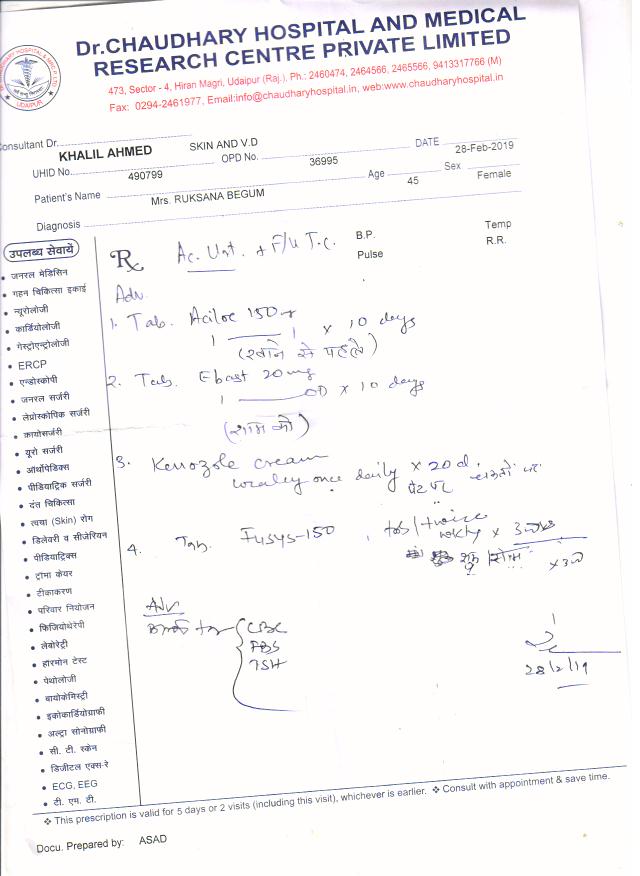 Dr.CHAUDHARY HOSPITAL AND MEDICAL
RESEARCH CENTRE PRIVATE LIMITED
473, Sector - 4, Hiran Magri, Udaipur (Raj.), Ph.: 2460474, 2464566, 2465566, 9413317766 (M)
Fax: 0294-2461977, Email:info@chaudharyhospital.in; web:www.chaudharyhospital.in
UDAIPUR
onsultant Dr. KHALIL AHMED SKIN AND V.D DATE 28-Feb-2019
UHID No. 490799 OPD No. 36995 Age 45 Sex Female
Patient's Name Mrs. RUKSANA BEGUM
Diagnosis
B.P. Temp
Pulse R.R.
उपलब्ध सेवायें
• जनरल मेडिसिन
• गहन चिकित्सा इकाई
• न्यूरोलोजी
• कार्डियोलोजी
• गेस्ट्रोएन्ट्रोलोजी
• ERCP
• एन्डोस्कोपी
• जनरल सर्जरी
• लेप्रोस्कोपिक सर्जरी
• कायोसर्जरी
• यूरो सर्जरी
• ऑर्थोपेडिक्स
• पीडियाट्रिक सर्जरी
• दंत चिकित्सा
• त्वचा (Skin) रोग
• डिलेवरी व सीजेरियन
• पीडियाट्रिक्स
• ट्रोमा केयर
• टीकाकरण
• परिवार नियोजन
• फिजियोथेरेपी
• लेबोरेट्री
• हारमोन टेस्ट
• पेथोलोजी
• बायोकेमिस्ट्री
• इकोकार्डियोग्राफी
• अल्ट्रा सोनोग्राफी
• सी. टी. स्केन
• डिजीटल एक्स-रे
• ECG, EEG
• टी. एम. टी.
Rx Ac. Urt. + F/U T.C.
Adv.
1. Tab. Aciloc 150
1 1 x 10 days
(खाने से पहले)
2. Tab. Ebast 20 mg
1 OD x 10 days
(शाम को)
3. Kenozole cream
locally once daily x 20 d.
4. Tab. Fusys-150, tab/twice
wkly x 3
CBC
FBS
TSH
28/2/19
❖ This prescription is valid for 5 days or 2 visits (including this visit), whichever is earlier. ❖ Consult with appointment & save time.
Docu. Prepared by: ASAD